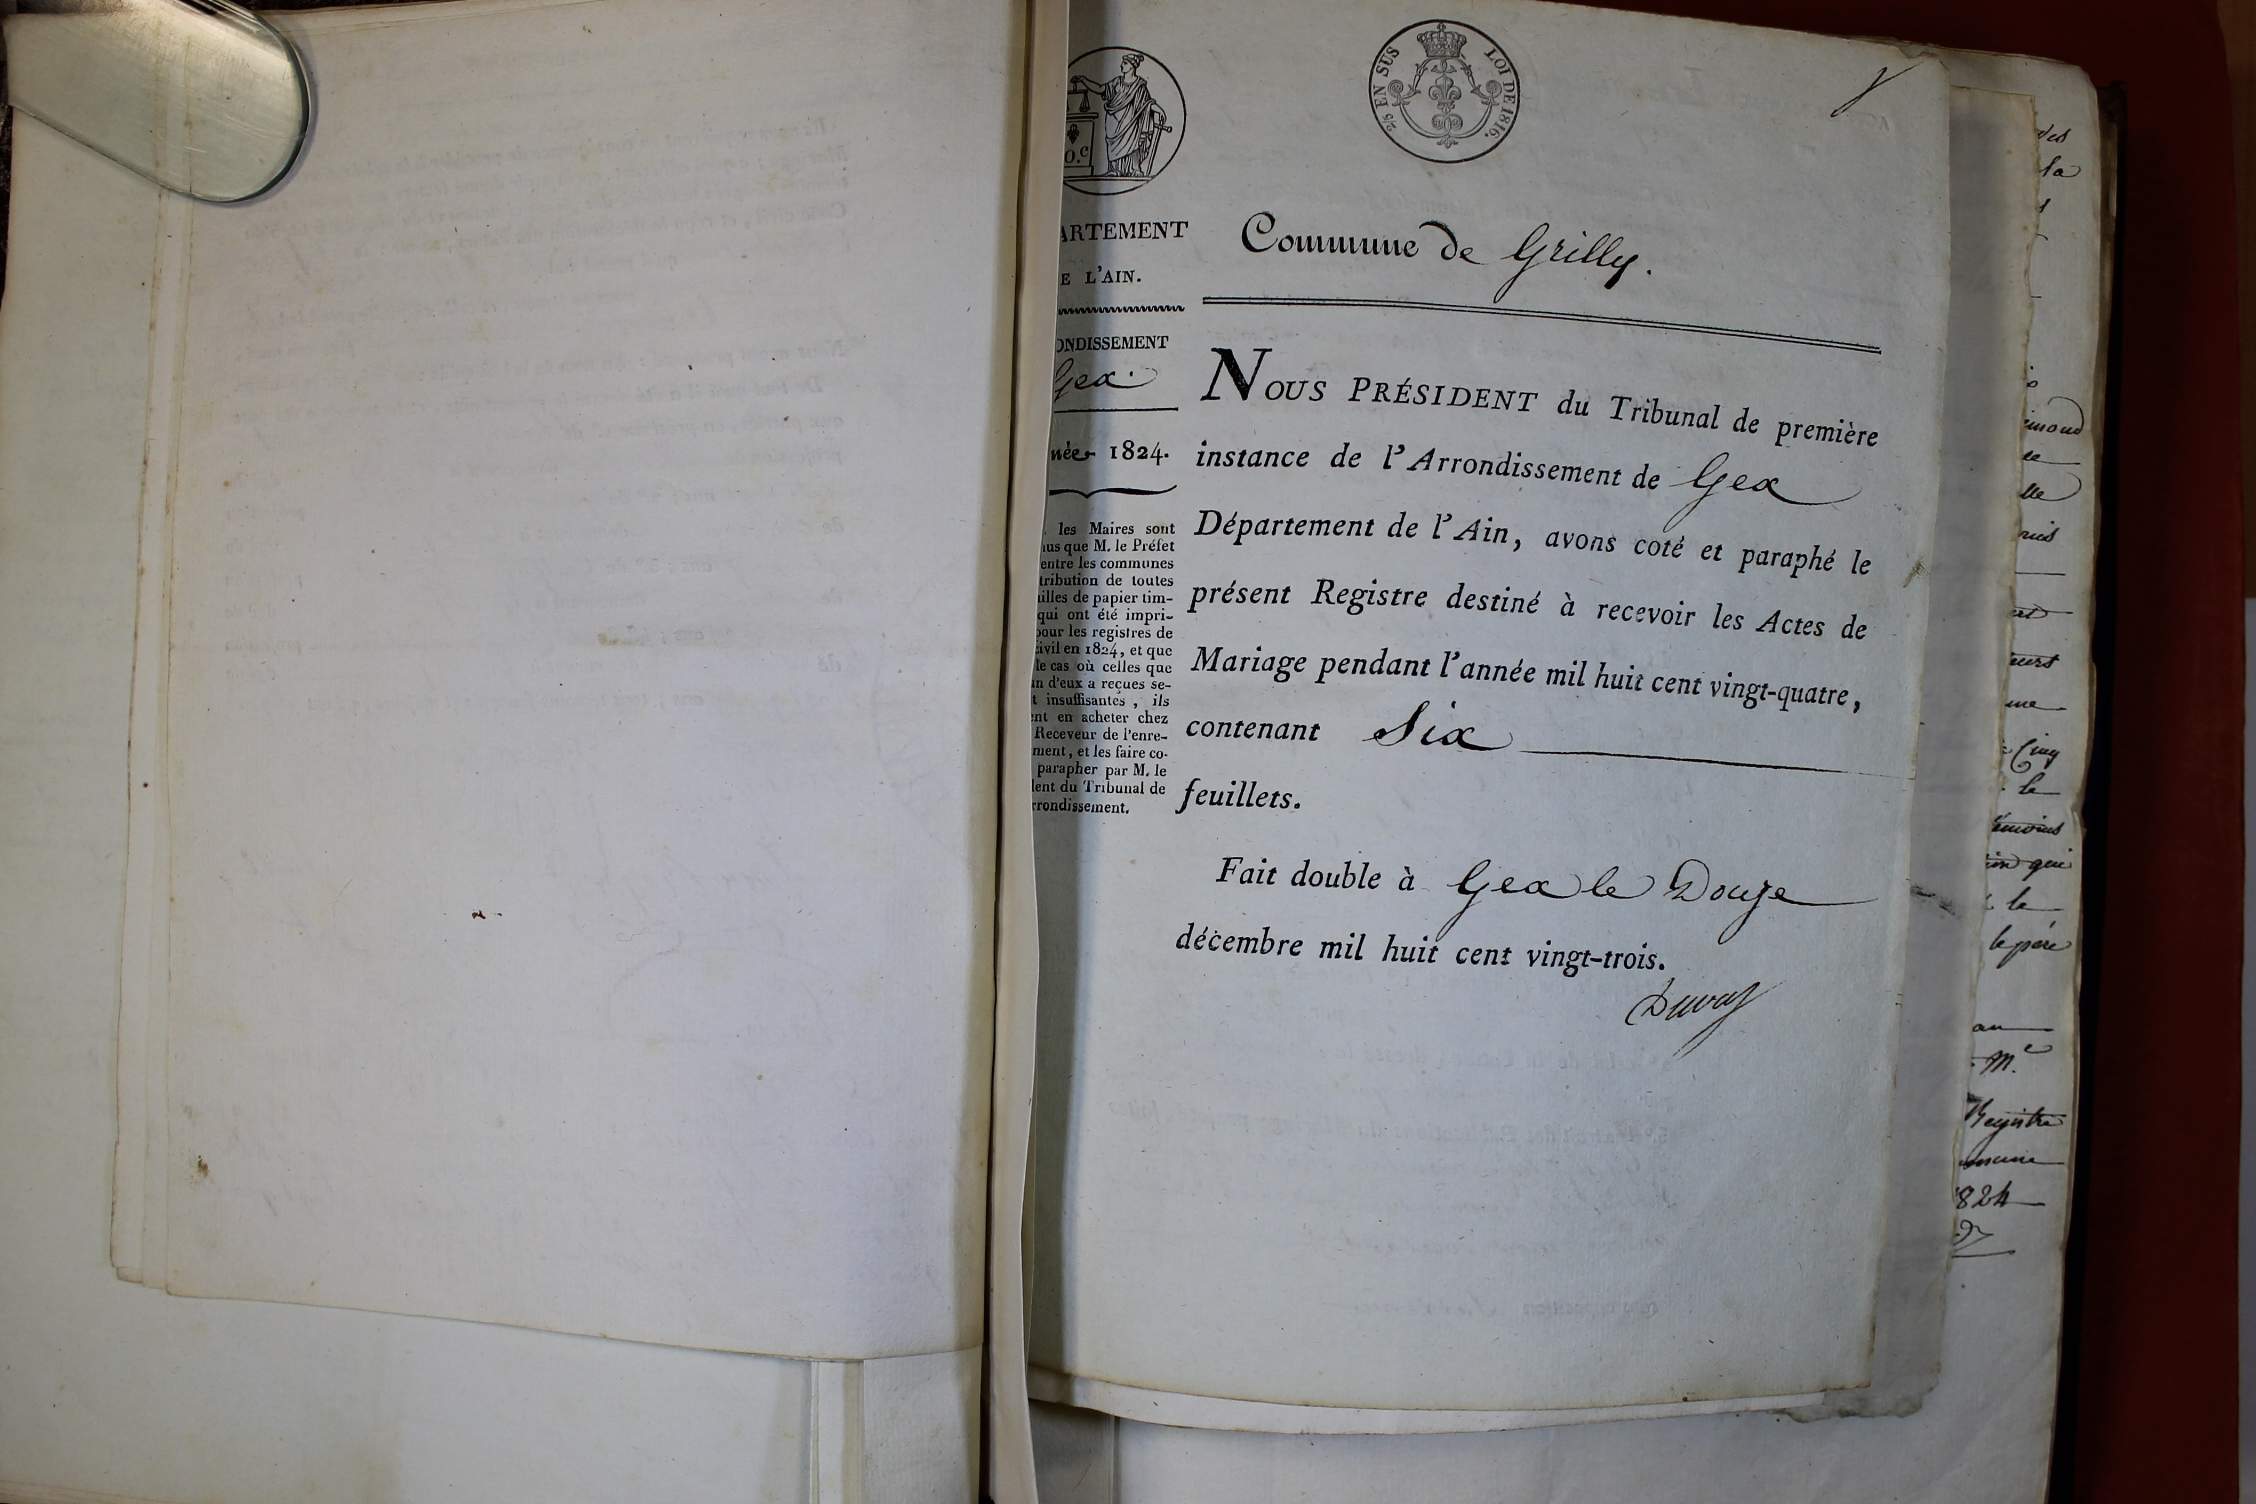 2/5 EN SUS LOI DE 1816.
O.c
ARTEMENT
E L'AIN.
ONDISSEMENT
Gex.
née 1824.
les Maires sont
us que M. le Préfet
entre les communes
tribution de toutes
illes de papier tim-
qui ont été impri-
pour les registres de
ivil en 1824, et que
le cas où celles que
un d'eux a reçues se-
t insuffisantes, ils
ent en acheter chez
Receveur de l'enre-
ment, et les faire co-
parapher par M. le
dent du Tribunal de
rrondissement.
Commune de Grilly.
NOUS PRÉSIDENT du Tribunal de première
instance de l'Arrondissement de Gex
Département de l'Ain, avons coté et paraphé le
présent Registre destiné à recevoir les Actes de
Mariage pendant l'année mil huit cent vingt-quatre,
contenant Six
feuillets.
Fait double à Gex le Douze
décembre mil huit cent vingt-trois.
des
la
lle
Cinq
le
émoins
qui
le
le père
au
M.e
Registre
1824